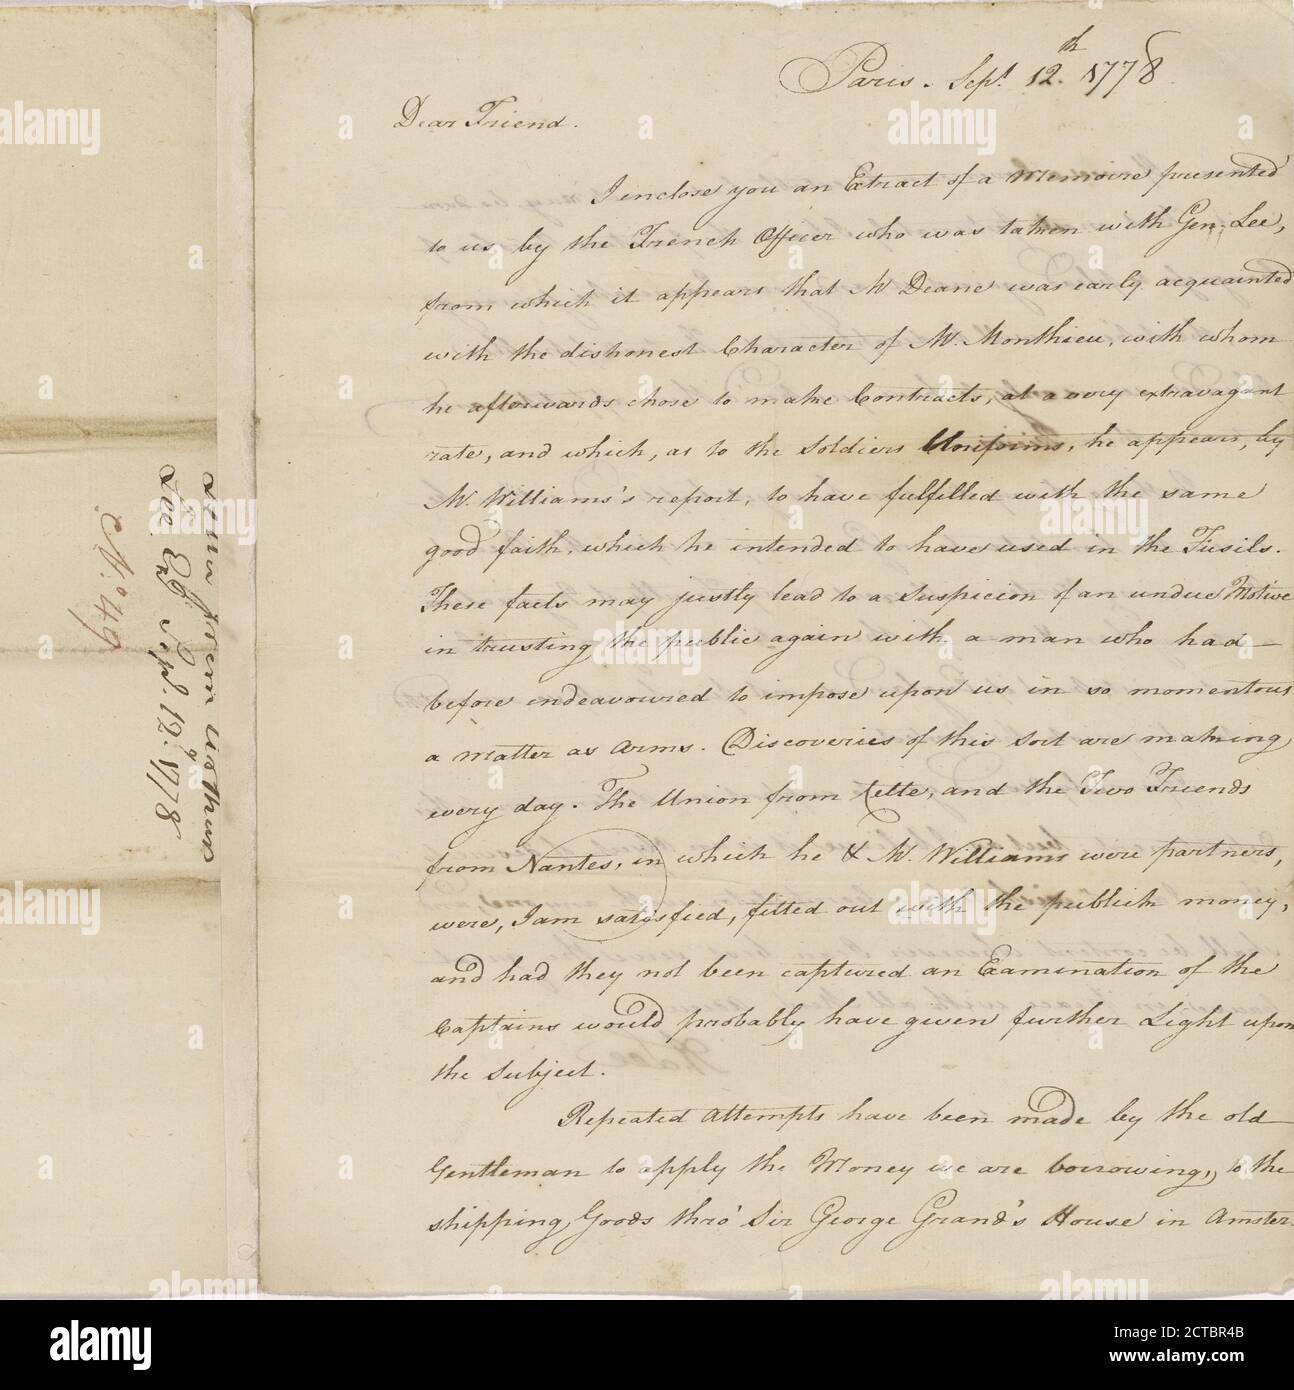 Paris. Sept. 12.th 1778
Dear Friend.
I enclose you an Extract of a Memoire presented
to us by the French Officer who was taken with Gen. Lee,
from which it appears that Mr Deane was early acquainted
with the dishonest Character of Mr. Monthieu, with whom
he afterwards chose to make Contracts, at a very extravagant
rate, and which, as to the Soldiers Uniforms, he appears, by
Mr. Williams's report, to have fulfilled with the same
good faith, which he intended to have used in the Fusils.
These facts may justly lead to a suspicion of an undue Motive
in trusting the public again with a man who had
before endeavoured to impose upon us in so momentous
a matter as arms. Discoveries of this sort are making
every day. The Union from Cette, and the Two Friends
from Nantes, in which he & Mr. Williams were partners,
were, I am satisfied, fitted out with the publick money,
and had they not been captured an Examination of the
Captains would probably have given further Light upon
the subject.
Repeated Attempts have been made by the old
Gentleman to apply the Money we are borrowing, to the
shipping Goods thro' Sir George Grand's House in Amster-
Lee Esqr. Sept. 12. 1778
No. 49
alamy
a
Image ID: 2CTBR4B
www.alamy.com